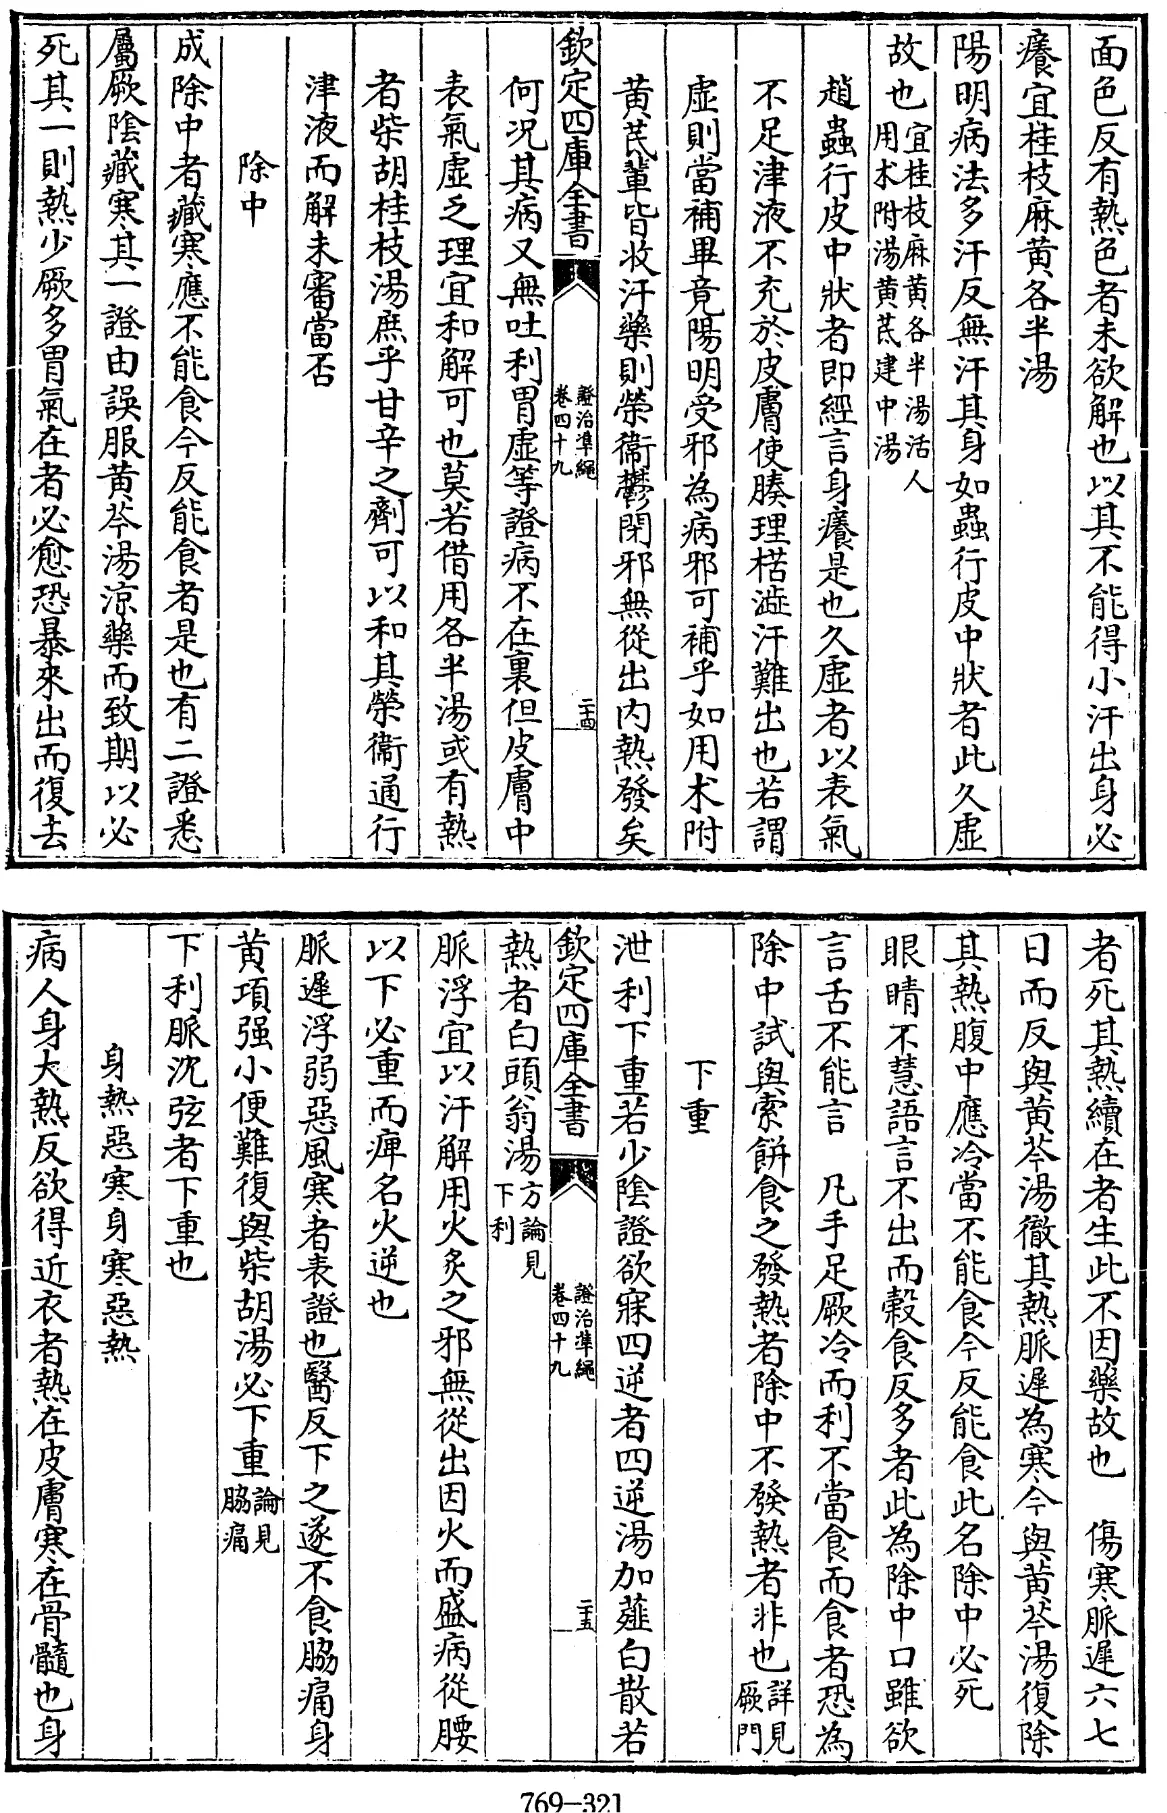 面色反有熱色者未欲解也以其不能得小汗出身必
癢宜桂枝麻黄各半湯
陽明病法多汗反無汗其身如蟲行皮中狀者此久虛
故也宜桂枝麻黄各半湯活人
用术附湯黄芪建中湯
趙蟲行皮中狀者即經言身癢是也久虛者以表氣
不足津液不充於皮膚使腠理枯澁汗難出也若謂
虛則當補畢竟陽明受邪為病邪可補乎如用术附
黄芪輩皆收汗藥則榮衞鬱閉邪無從出内熱發矣
欽定四庫全書
證治準繩
卷四十九
二十四
何况其病又無吐利胃虛等證病不在裏但皮膚中
表氣虛乏理宜和解可也莫若借用各半湯或有熱
者柴胡桂枝湯庶乎甘辛之劑可以和其榮衞通行
津液而解未審當否
除中
成除中者藏寒應不能食今反能食者是也有二證悉
屬厥陰藏寒其一證由誤服黄芩湯涼藥而致期以必
死其一則熱少厥多胃氣在者必愈恐暴來出而復去
者死其熱續在者生此不因藥故也 傷寒脈遲六七
日而反與黄芩湯徹其熱脈遲為寒今與黄芩湯復除
其熱腹中應冷當不能食今反能食此名除中必死
眼睛不慧語言不出而穀食反多者此為除中口雖欲
言舌不能言 凡手足厥冷而利不當食而食者恐為
除中試與索餅食之發熱者除中不發熱者非也詳見
厥門
下重
泄利下重若少陰證欲寐四逆者四逆湯加薤白散若
欽定四庫全書
證治準繩
卷四十九
二十五
熱者白頭翁湯方論見
下利
脈浮宜以汗解用火炙之邪無從出因火而盛病從腰
以下必重而痺名火逆也
脈遲浮弱惡風寒者表證也醫反下之遂不食脇痛身
黄項强小便難復與柴胡湯必下重論見
脇痛
下利脈沈弦者下重也
身熱惡寒身寒惡熱
病人身大熱反欲得近衣者熱在皮膚寒在骨髓也身
769-321